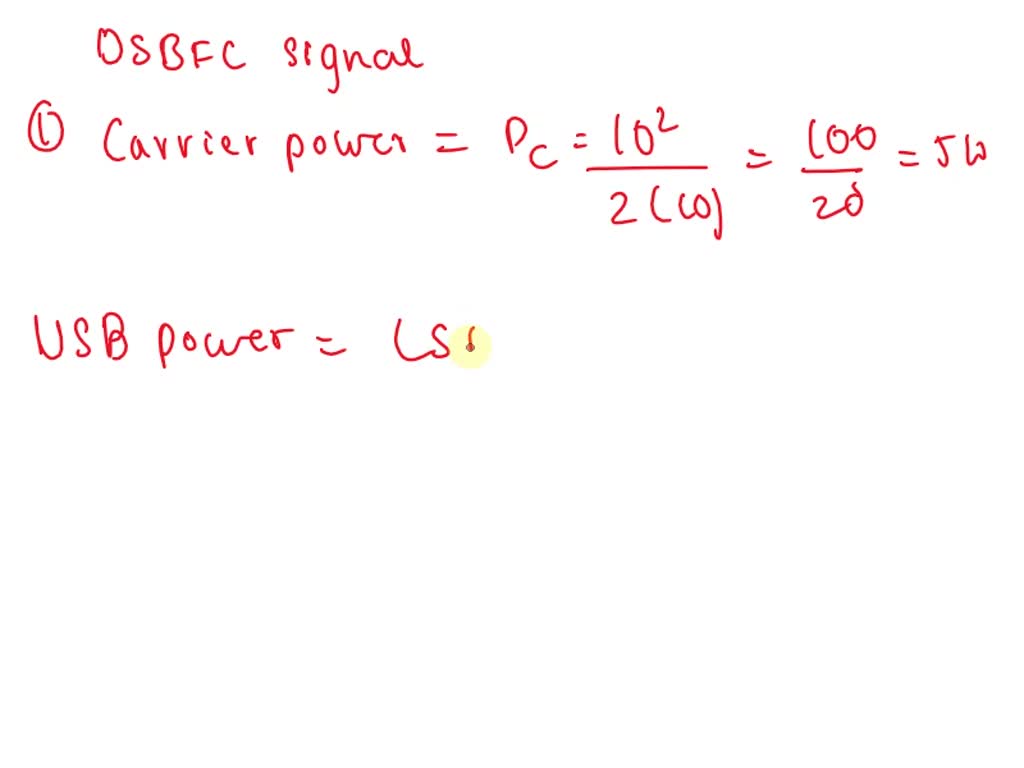 DSBFC signal
① Carrier power = Pc = 10² / 2(10) = 100 / 20 = 5W
USB power = LS